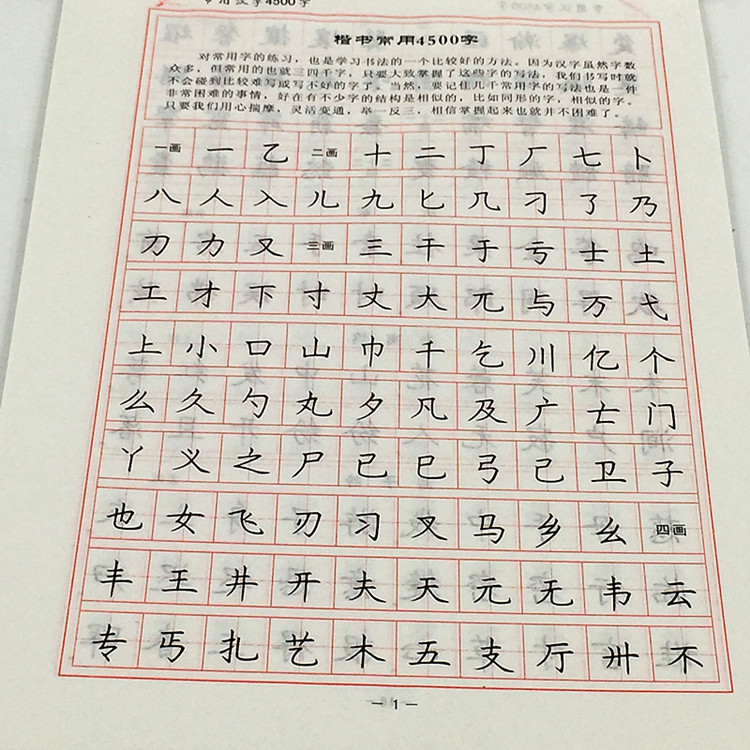 常用汉字4500字
楷书常用4500字
对常用字的练习，也是学习书法的一个比较好的方法。因为汉字虽然字数
众多，但常用的也就三四千字，只要大致掌握了这些字的写法，我们书写时就
不会碰到比较难写或写不好的字了。当然，要记住几千常用字的写法也是一件
非常困难的事情，好在有不少字的结构是相似的，比如同形的字，相似的字。
只要我们用心揣摩，灵活变通，举一反三，相信掌握起来也就并不困难了。
一画 一 乙 二画 十 二 丁 厂 七 卜
八 人 入 儿 九 匕 几 刁 了 乃
刀 力 又 三画 三 干 于 亏 士 土
工 才 下 寸 丈 大 兀 与 万 弋
上 小 口 山 巾 千 乞 川 亿 个
么 久 勺 丸 夕 凡 及 广 士 门
丫 义 之 尸 已 巳 弓 己 卫 子
也 女 飞 刃 习 叉 马 乡 幺 四画
丰 王 井 开 夫 天 元 无 韦 云
专 丐 扎 艺 木 五 支 厅 卅 不
— 1 —